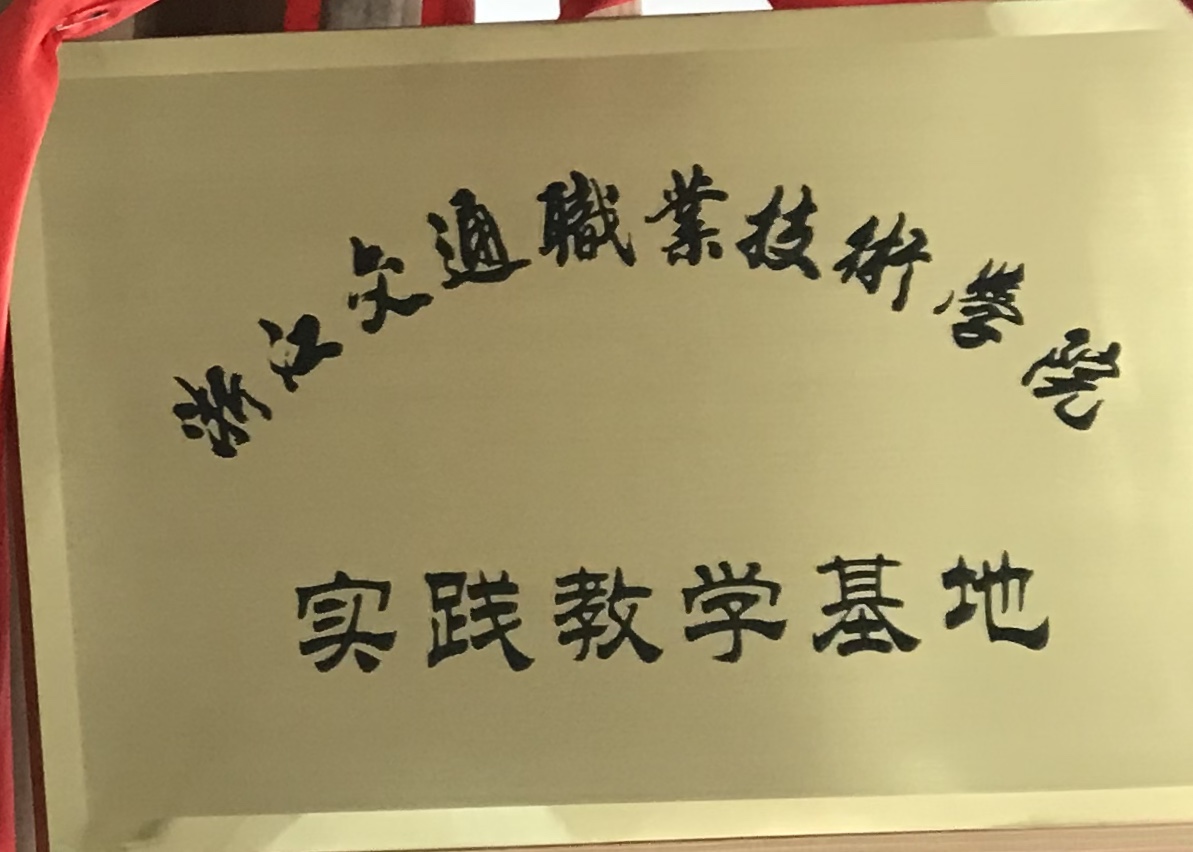 浙江交通職業技術學院
实践教学基地